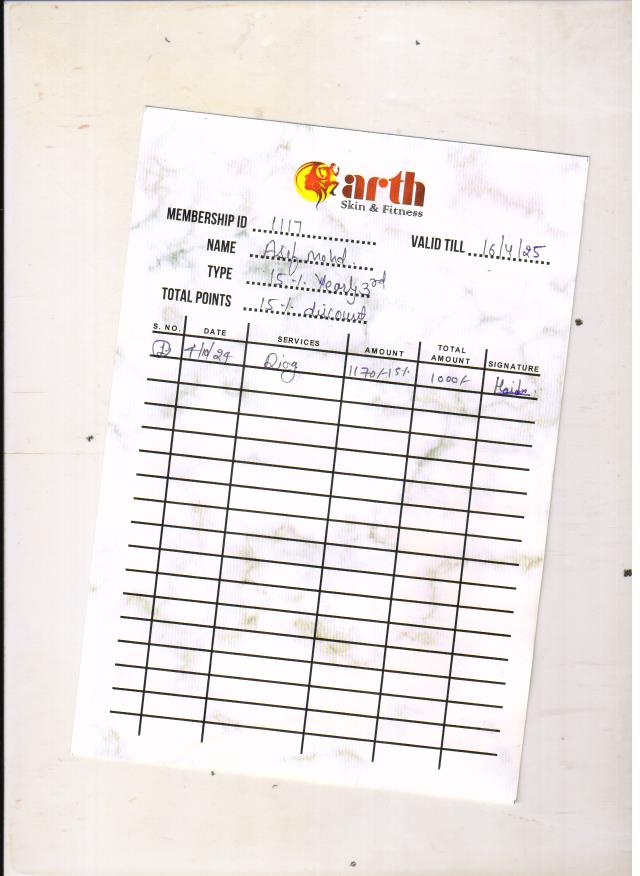 arth
Skin & Fitness
MEMBERSHIP ID 1117
VALID TILL 16/4/25
NAME Asif mohd.
TYPE 15% Yearly 3rd
TOTAL POINTS 15% discount
S. NO. DATE SERVICES AMOUNT TOTAL AMOUNT SIGNATURE
1170/-15% 1000/-